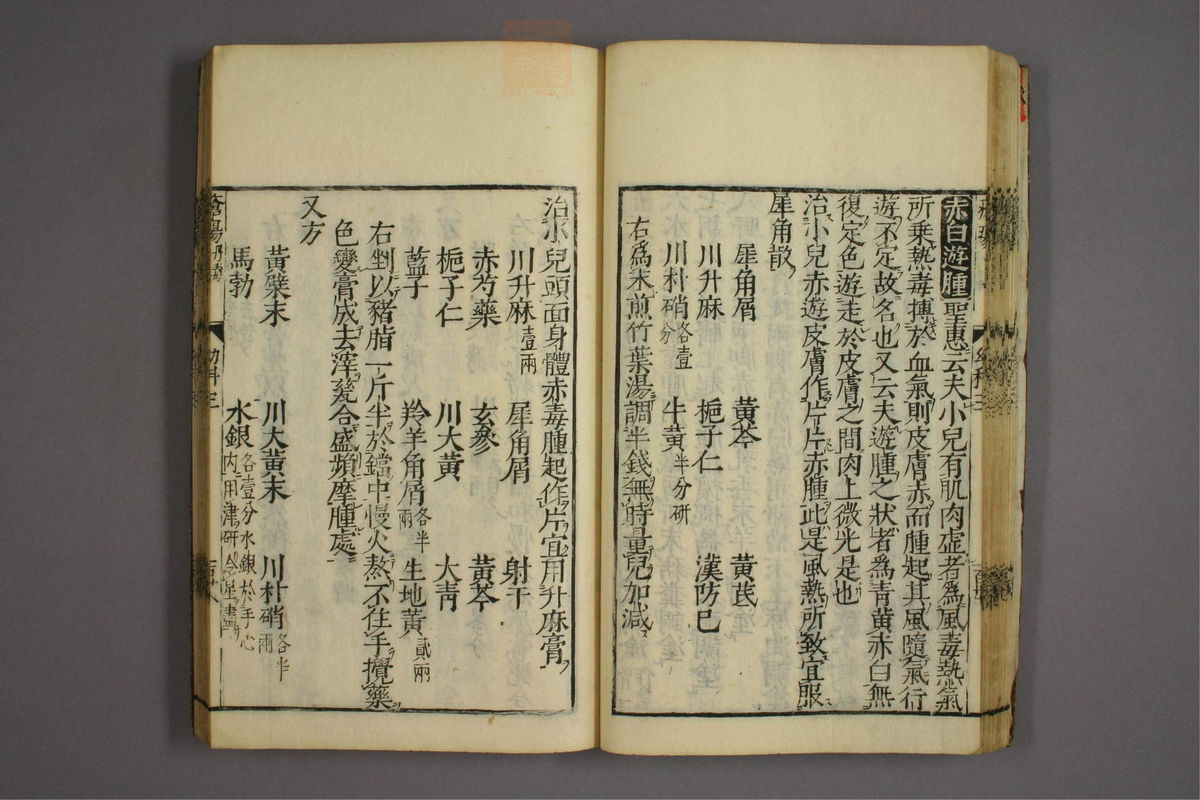 赤白遊腫聖惠云夫小兒有肌肉虚者為風毒熱氣
所乗熱毒搏於血氣則皮膚赤而腫起其風隨氣行
遊不定故名也又云夫遊腫之狀者為青黄赤白無
復定色遊走於皮膚之間肉上微光是也
治小兒赤遊皮膚作片片赤腫此是風熱所致宜服
犀角散
犀角屑 黄芩 黄芪
川升麻 梔子仁 漢防巳
川朴硝各壹分 牛黄半分研
右爲末煎竹葉湯調半錢無時量兒加減
治小兒頭面身體赤毒腫起作片宜用升麻膏
川升麻壹兩 犀角屑 射干
赤芍藥 玄參 黄芩
梔子仁 川大黄 大青
藍子 羚羊角屑各半兩 生地黄貳兩
右剉以豬脂一斤半於鐺中慢火熬不住手攪藥
色變膏成去滓瓷合盛頻摩腫處
又方
黄蘗末 川大黄末 川朴硝各半兩
馬勃 水銀各壹分水銀於手心内用津研令星盡
幼科三